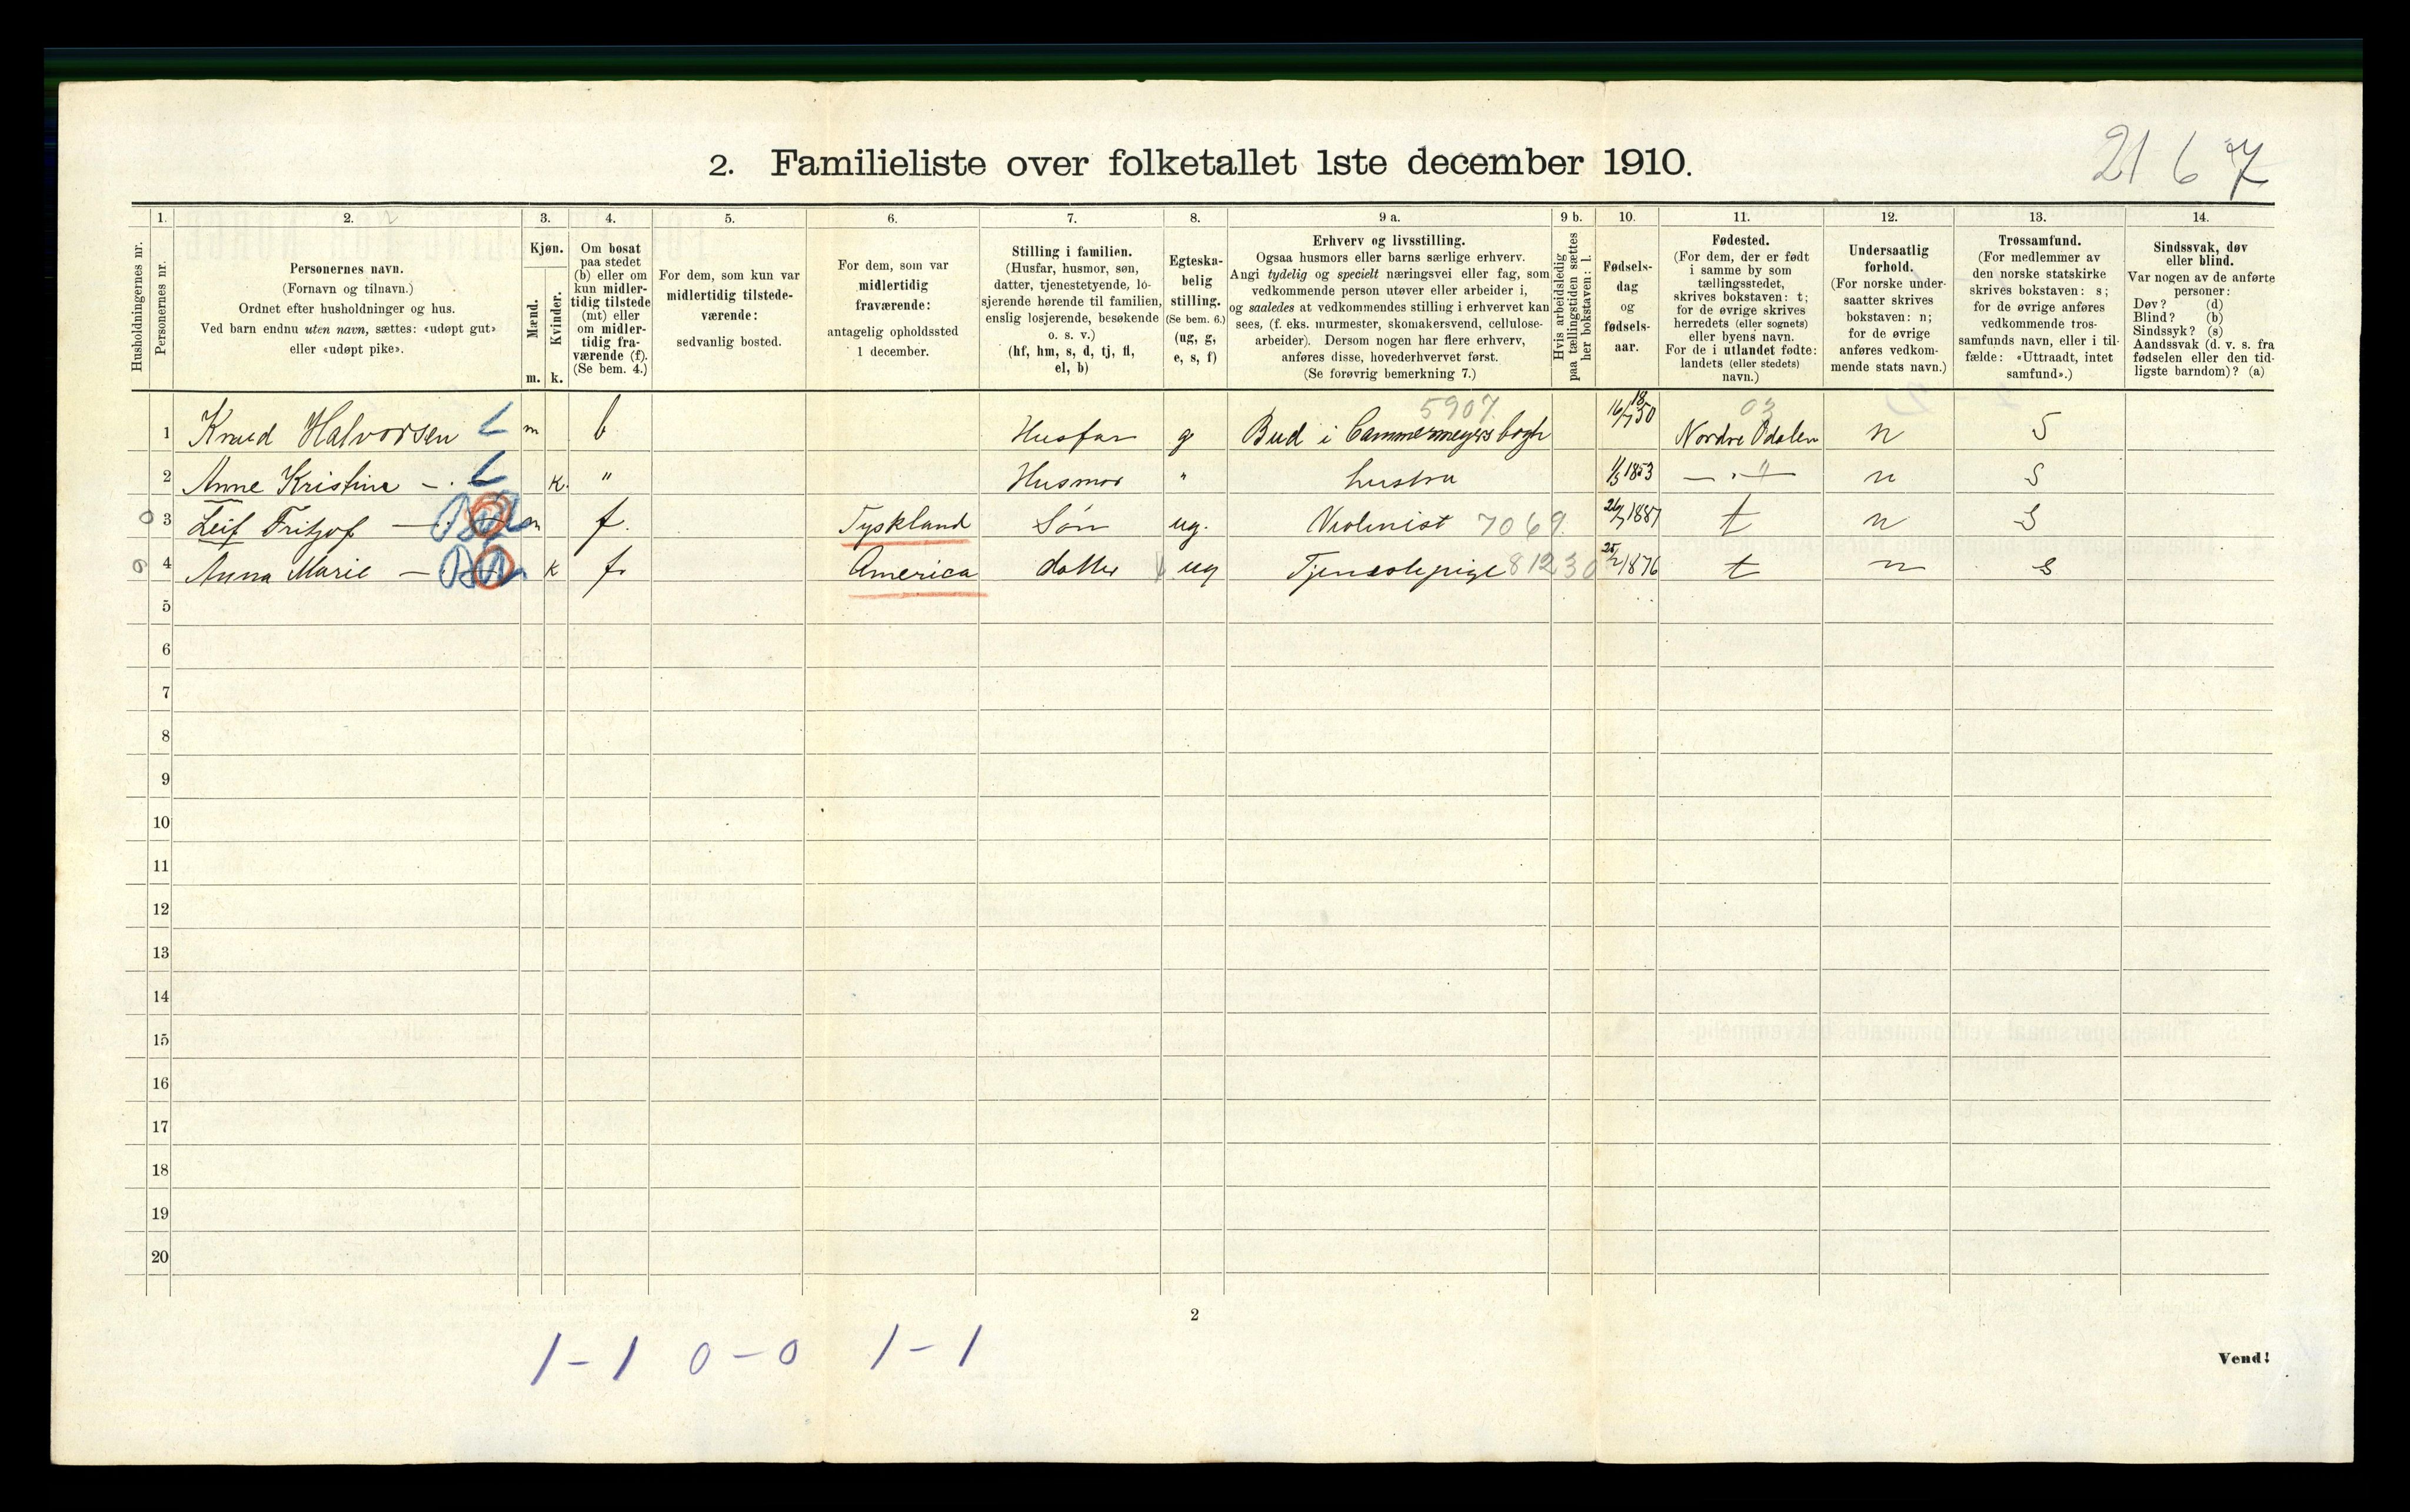 2. Familieliste over folketallet 1ste december 1910.
21 67
Husholdningernes nr.
1.
Personernes nr.
2.
Personernes navn.
(Fornavn og tilnavn.)
Ordnet efter husholdninger og hus.
Ved barn endnu uten navn, sættes: «udøpt gut»
eller «udøpt pike».
3.
Kjøn.
Mænd.
Kvinder.
m. k.
4.
Om bosat
paa stedet
(b) eller om
kun midler-
tidig tilstede
(mt) eller
om midler-
tidig fra-
værende (f).
(Se bem. 4.)
5.
For dem, som kun var
midlertidig tilstede-
værende:
sedvanlig bosted.
6.
For dem, som var
midlertidig
fraværende:
antagelig opholdssted
1 december.
7.
Stilling i familien.
(Husfar, husmor, søn,
datter, tjenestetyende, lo-
sjerende hørende til familien,
enslig losjerende, besøkende
o. s. v.)
(hf, hm, s, d, tj, fl,
el, b)
8.
Egteska-
belig
stilling.
(Se bem. 6.)
(ug, g,
e, s, f)
9 a.
Erhverv og livsstilling.
Ogsaa husmors eller barns særlige erhverv.
Angi tydelig og specielt næringsvei eller fag, som
vedkommende person utøver eller arbeider i,
og saaledes at vedkommendes stilling i erhvervet kan
sees, (f. eks. murmester, skomakersvend, cellulose-
arbeider). Dersom nogen har flere erhverv,
anføres disse, hovederhvervet først.
(Se forøvrig bemerkning 7.)
9 b.
Hvis arbeidsledig
paa tællingstiden sættes
her bokstaven: l.
10.
Fødsels-
dag
og
fødsels-
aar.
11.
Fødested.
(For dem, der er født
i samme by som
tællingsstedet,
skrives bokstaven: t;
for de øvrige skrives
herredets (eller sognets)
eller byens navn.
For de i utlandet fødte:
landets (eller stedets)
navn.)
12.
Undersaatlig
forhold.
(For norske under-
saatter skrives
bokstaven: n;
for de øvrige
anføres vedkom-
mende stats navn.)
13.
Trossamfund.
(For medlemmer av
den norske statskirke
skrives bokstaven: s;
for de øvrige anføres
vedkommende tros-
samfunds navn, eller i til-
fælde: «Uttraadt, intet
samfund».)
14.
Sindssvak, døv
eller blind.
Var nogen av de anførte
personer:
Døv? (d)
Blind? (b)
Sindssyk? (s)
Aandssvak (d. v. s. fra
fødselen eller den tid-
ligste barndom)? (a)
5907. 03
1 Knud Halvorsen L m b Husfar g Bud i Cammermeyers bogh 16/7 1850 Nordre Odalen n S
2 Anne Kristine — . L k. " Husmor " hustru 1/5 1853 — " — n S
0 3 Leif Fritjof — m f. Tyskland Søn ug. Violinist 7069. 26/7 1887 t n S
0 4 Anna Marie — k f. America datter ug Tjenestepige 81230 25/2 1876 t n S
5
6
7
8
9
10
11
12
13
14
15
16
17
18
19
20
2
1 - 1 0 - 0 1 - 1
Vend!